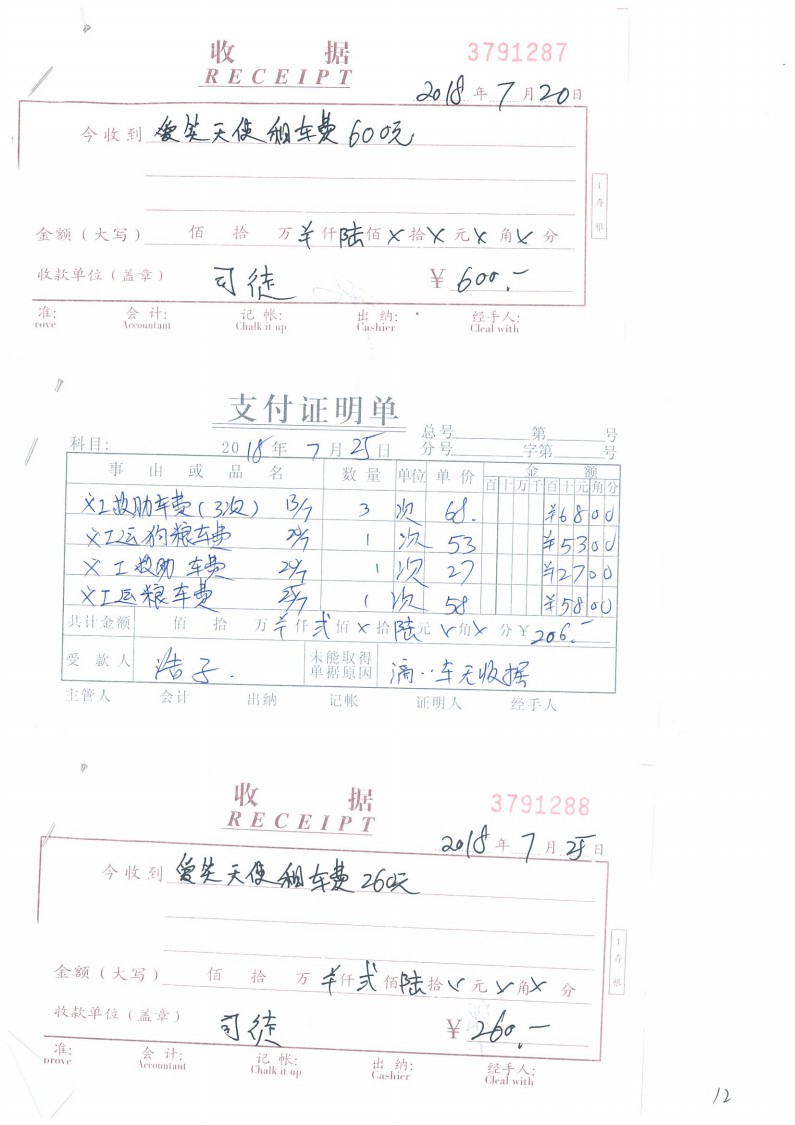 收 据 3791287
RECEIPT
2018 年 7 月 20 日
今收到 爱笑天使租车费600元
金额(大写) 佰 拾 万 ¥ 仟 陆 佰 × 拾 × 元 × 角 × 分
收款单位(盖章) 司徒 ¥ 600.-
准: 会 计: 记 帐: 出 纳: 经手人:
rove Accountant Chalk it up Cashier Cleal with
支付证明单
总号 第 号
科目: 2018 年 7 月 25 日 分号 字第 号
事 由 或 品 名 数 量 单位 单 价 金 额
百 十 万 千 百 十 元 角 分
义工救助车费(3次) 13/7 3 次 68. ¥6800
义工运狗粮车费 1 次 53 ¥5300
义工救助 车费 1 次 27 ¥2700
义工运粮车费 1 次 58 ¥5800
共计金额 佰 拾 万 ¥ 仟 贰 佰 × 拾 陆 元 × 角 × 分 ¥ 206.-
受 款 人 浩子. 未能取得单据原因 滴··车无收据
主管人 会计 出纳 记帐 证明人 经手人
收 据 3791288
RECEIPT
2018 年 7 月 25 日
今收到 爱笑天使租车费260元
金额(大写) 佰 拾 万 ¥ 仟 贰 佰 陆 拾 × 元 × 角 × 分
收款单位(盖章) 司徒 ¥ 260.-
准: 会 计: 记 帐: 出 纳: 经手人:
prove Accountant Chalk it up Cashier Cleal with
12